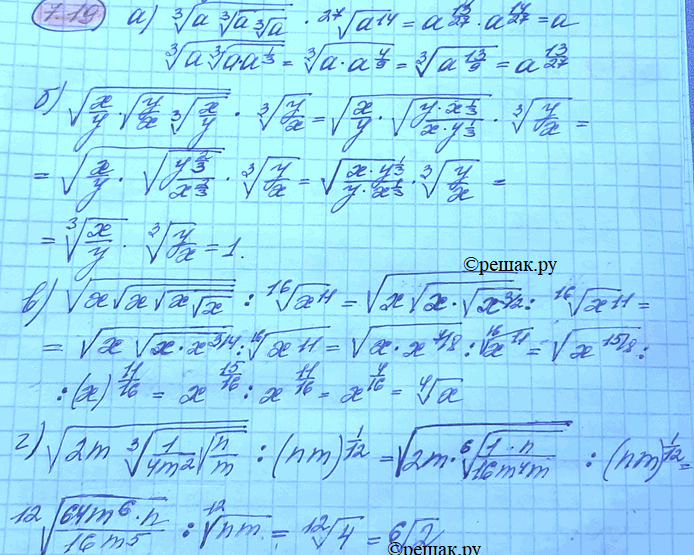 7.19) а) ∛(a ∛(a ∛a)) · ²⁷√(a¹⁴) = a^(13/27) · a^(14/27) = a
∛(a ∛(a·a^(1/3))) = ∛(a·a^(4/9)) = ∛(a^(13/9)) = a^(13/27)
б) √(x/y · √(y/x ∛(x/y))) · ∛(y/x) = √(x/y · √((y·x^(1/3))/(x·y^(1/3)))) · ∛(y/x) =
= √(x/y · √(y^(2/3)/x^(2/3))) · ∛(y/x) = √((x·y^(1/3))/(y·x^(1/3))) · ∛(y/x) =
= ∛(x/y) · ∛(y/x) = 1.
©решак.ру
в) √(x√(x√(x√x))) : ¹⁶√(x¹¹) = √(x√(x·√(x^(3/2)))) : ¹⁶√(x¹¹) =
= √(x √(x·x^(3/4))) : ¹⁶√(x¹¹) = √(x·x^(7/8)) : ¹⁶√(x¹¹) = √(x^(15/8)) :
: (x)^(11/16) = x^(15/16) : x^(11/16) = x^(4/16) = ⁴√x
г) √(2m ∛(1/(4m²) √(n/m))) : (nm)^(1/12) = √(2m · ⁶√((1·n)/(16m⁴m))) : (nm)^(1/12) =
¹²√((64m⁶·n)/(16m⁵)) : ¹²√(nm) = ¹²√4 = ⁶√2
©решак.ру